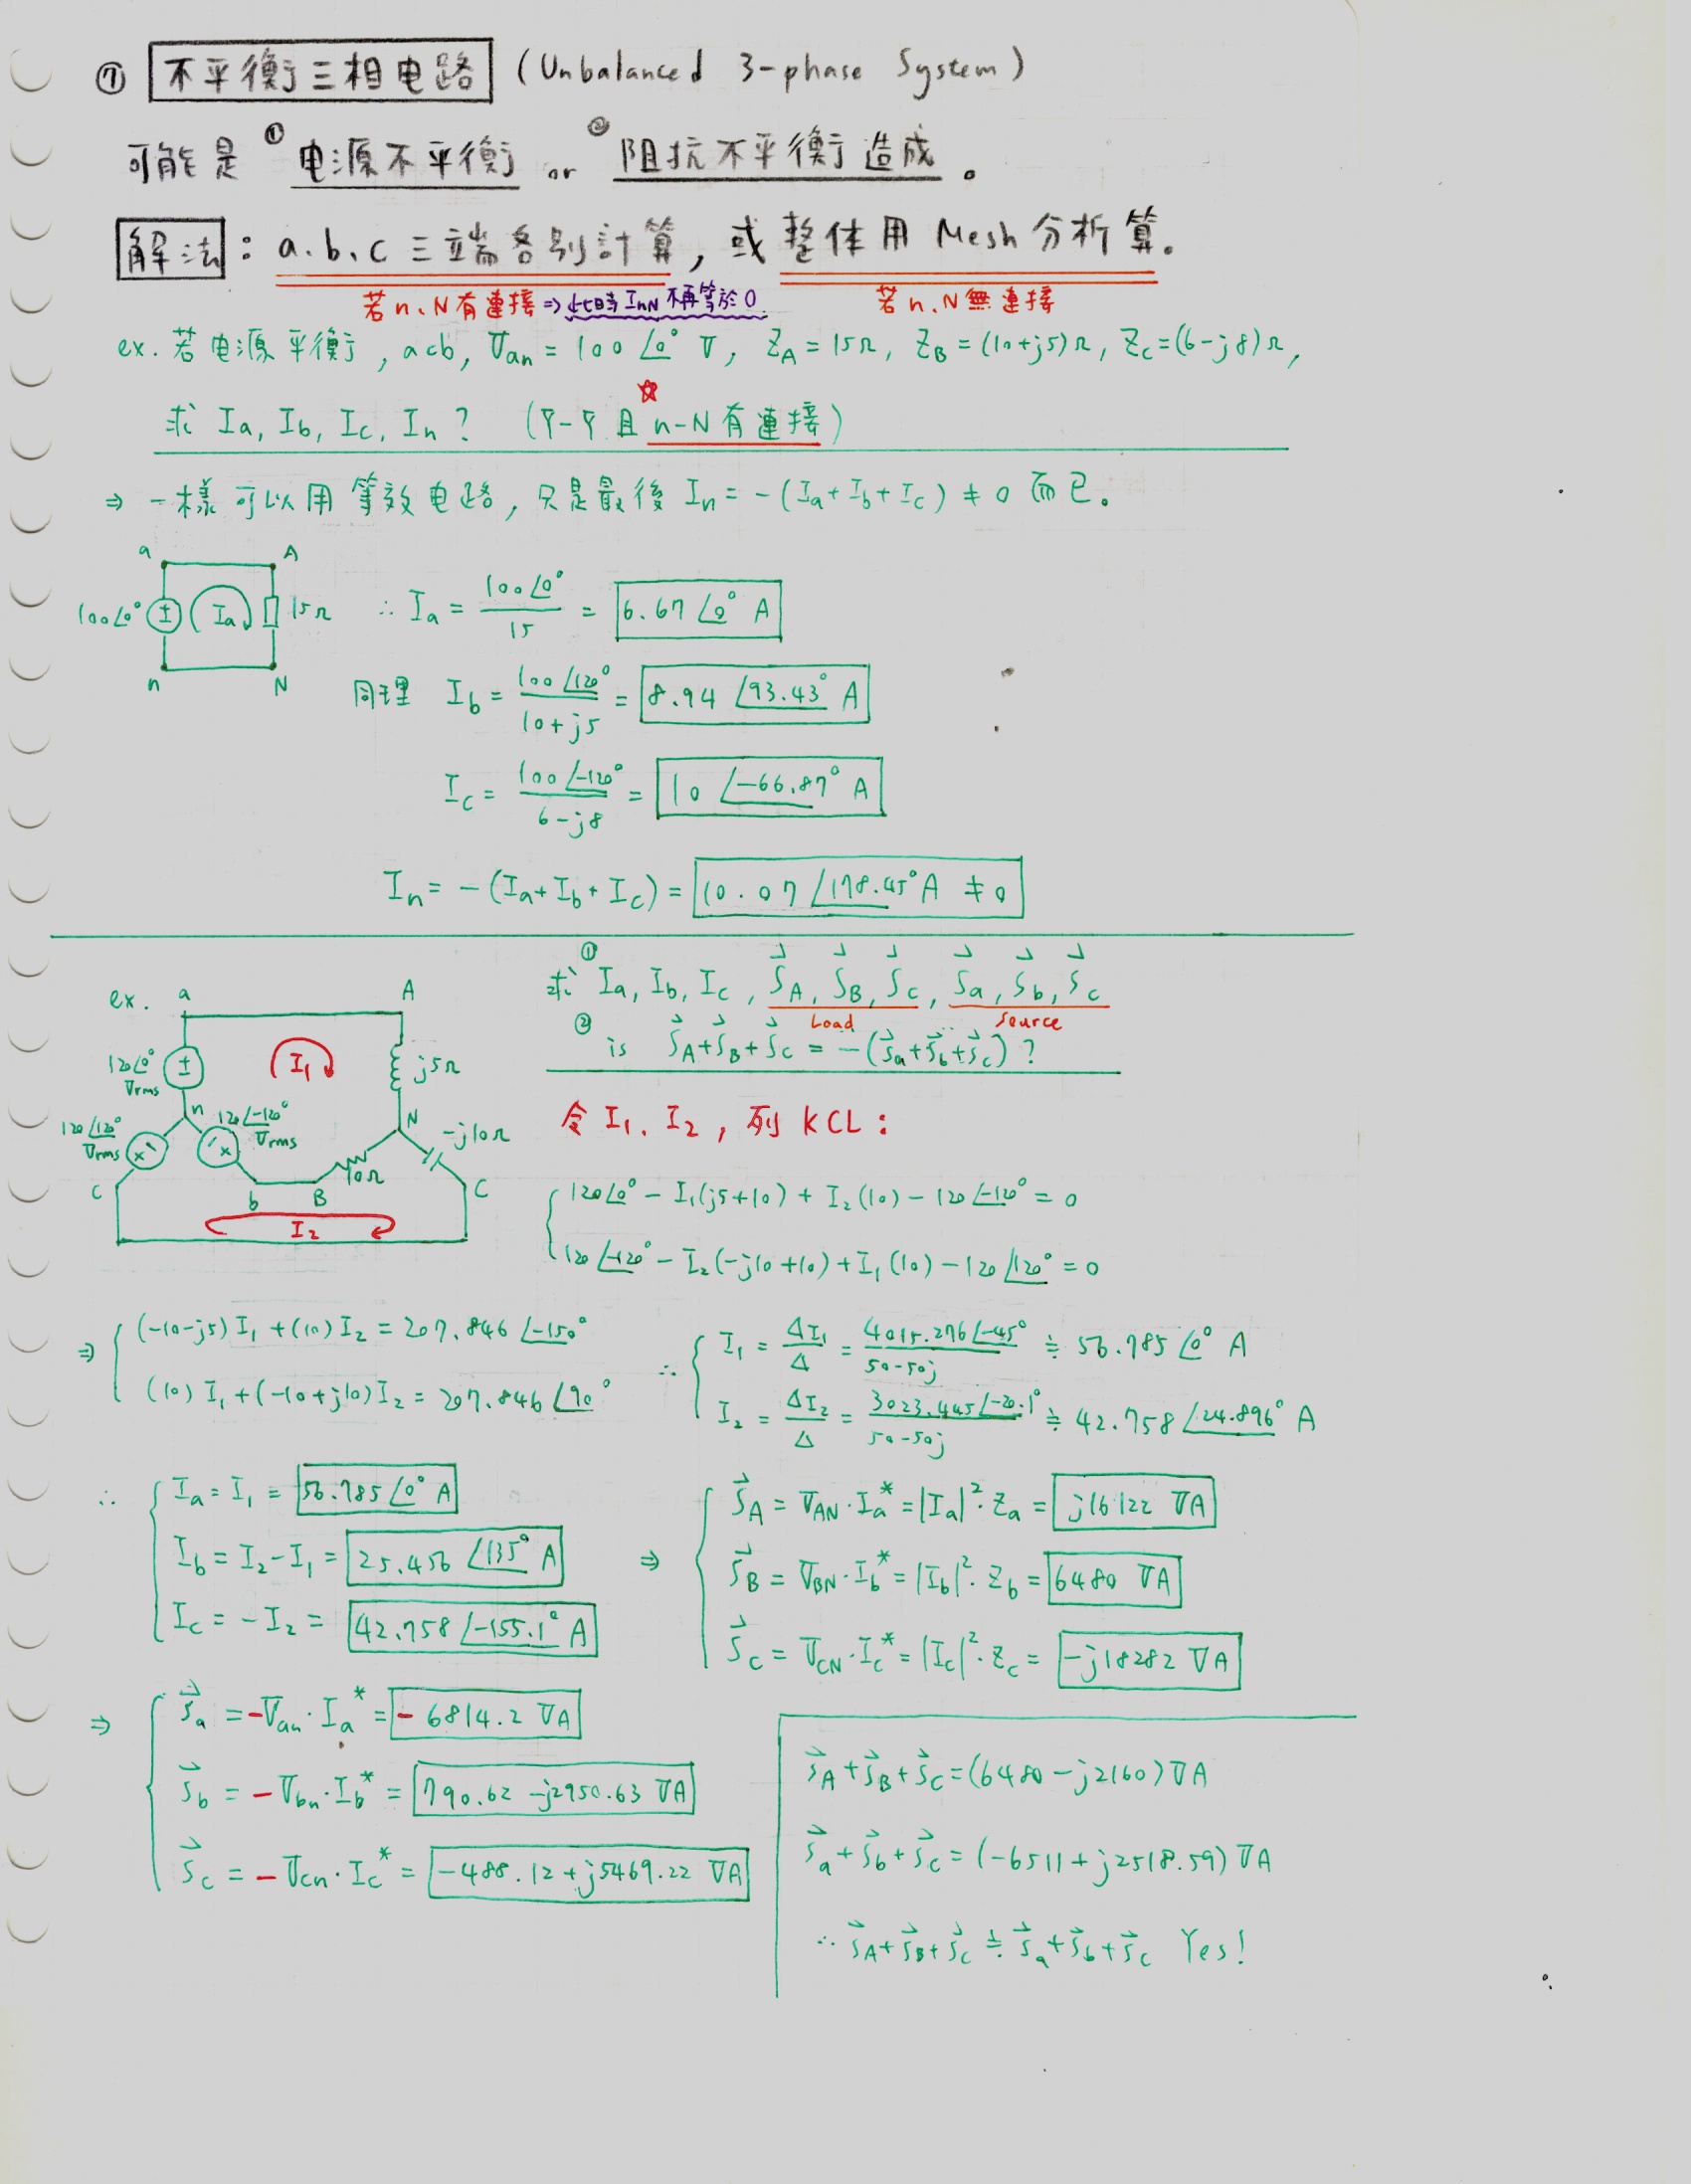 ⑦ 不平衡三相电路 (Unbalanced 3-phase System)
可能是 ①电源不平衡 or ②阻抗不平衡造成。
解法: a.b.c三端各別計算, 或整体用 Mesh分析算。
若n、N有連接⇒此時InN不再等於0. 若n、N無連接
ex. 若电源平衡, acb, Van = 100∠0° V, ZA = 15Ω, ZB = (10+j5)Ω, Zc = (6-j8)Ω,
求 Ia, Ib, Ic, In ? (Y-Y且 n-N有連接) ☆
⇒ 一樣可以用等效电路, 只是最後 In = -(Ia+Ib+Ic) ≠ 0 而已。
a A
100∠0° ± Ia 15Ω ∴ Ia = 100∠0° / 15 = 6.67∠0° A
n N
同理 Ib = 100∠120° / 10+j5 = 8.94∠93.43° A
Ic = 100∠-120° / 6-j8 = 10∠-66.87° A
In = -(Ia+Ib+Ic) = 10.07∠178.45° A ≠ 0
求 ① Ia, Ib, Ic, S⃗A, S⃗B, S⃗c, S⃗a, S⃗b, S⃗c
Load Source
② is S⃗A+S⃗B+S⃗c = -(S⃗a+S⃗b+S⃗c) ?
ex. a A
120∠0° Vrms ± I1 j5Ω
n 120∠-120° Vrms N -j10Ω
120∠120° Vrms 10Ω
c b B C
I2
令 I1、I2, 列 KCL:
120∠0° - I1(j5+10) + I2(10) - 120∠-120° = 0
120∠-120° - I2(-j10+10) + I1(10) - 120∠120° = 0
⇒ (-10-j5) I1 + (10) I2 = 207.846∠-150°
(10) I1 + (-10+j10) I2 = 207.846∠90°
∴ I1 = ΔI1 / Δ = 4015.276∠-45° / 50-50j ≒ 56.785∠0° A
I2 = ΔI2 / Δ = 3023.445∠-20.1° / 50-50j ≒ 42.758∠24.896° A
∴ Ia = I1 = 56.785∠0° A
Ib = I2 - I1 = 25.456∠135° A
Ic = -I2 = 42.758∠-155.1° A
⇒ S⃗A = VAN·Ia* = |Ia|²·Za = j16122 VA
S⃗B = VBN·Ib* = |Ib|²·Zb = 6480 VA
S⃗c = VCN·Ic* = |Ic|²·Zc = -j18282 VA
⇒ S⃗a = -Van·Ia* = -6814.2 VA
S⃗b = -Vbn·Ib* = 790.62 -j2950.63 VA
S⃗c = -Vcn·Ic* = -488.12 +j5469.22 VA
S⃗A+S⃗B+S⃗C = (6480-j2160) VA
S⃗a+S⃗b+S⃗c = (-6511+j2518.59) VA
∴ S⃗A+S⃗B+S⃗c ≒ S⃗a+S⃗b+S⃗c Yes!